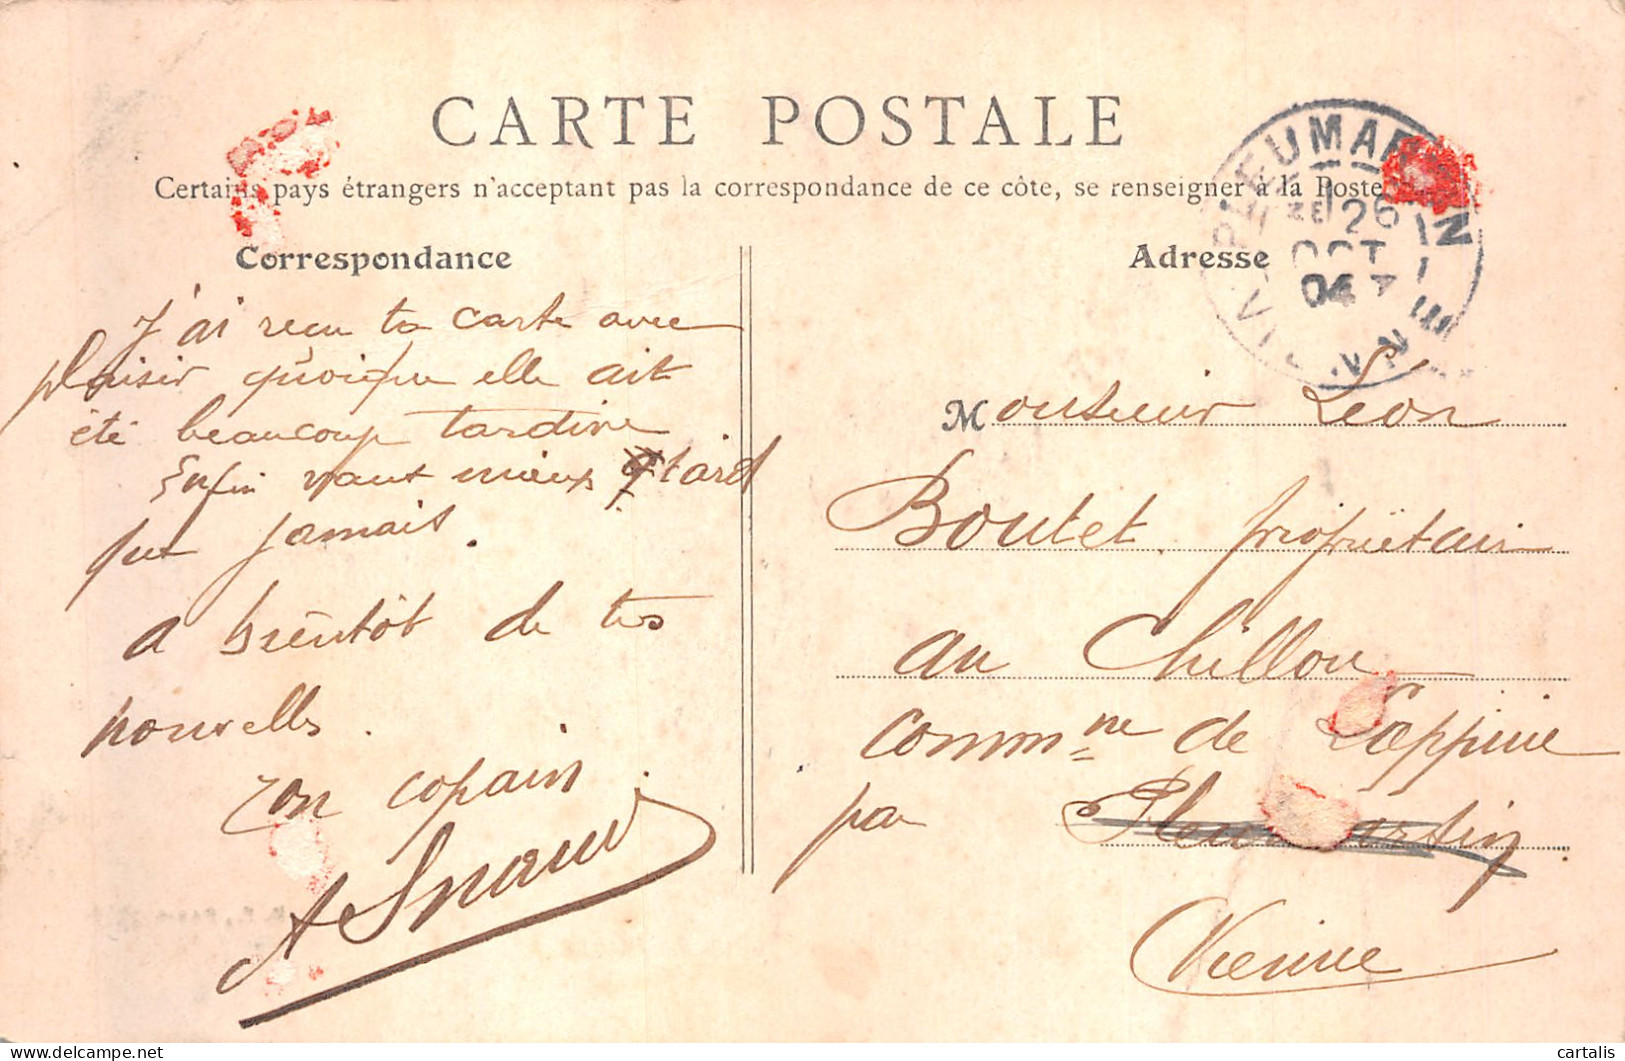 CARTE POSTALE
Certains pays étrangers n'acceptant pas la correspondance de ce côte, se renseigner à la Poste
Correspondance
J'ai reçu ta carte avec
plaisir quoique elle ait
été beaucoup tardive
Enfin vaut mieux tard
que jamais.
a bientôt de tes
nouvelles.
Ton copain
Adresse
PLEUMARTIN
26
OCT
04
VIENNE
Monsieur Leon
Boutet propriétaire
au Chillou
commne de
par Pleumartin
Vienne
cartalis